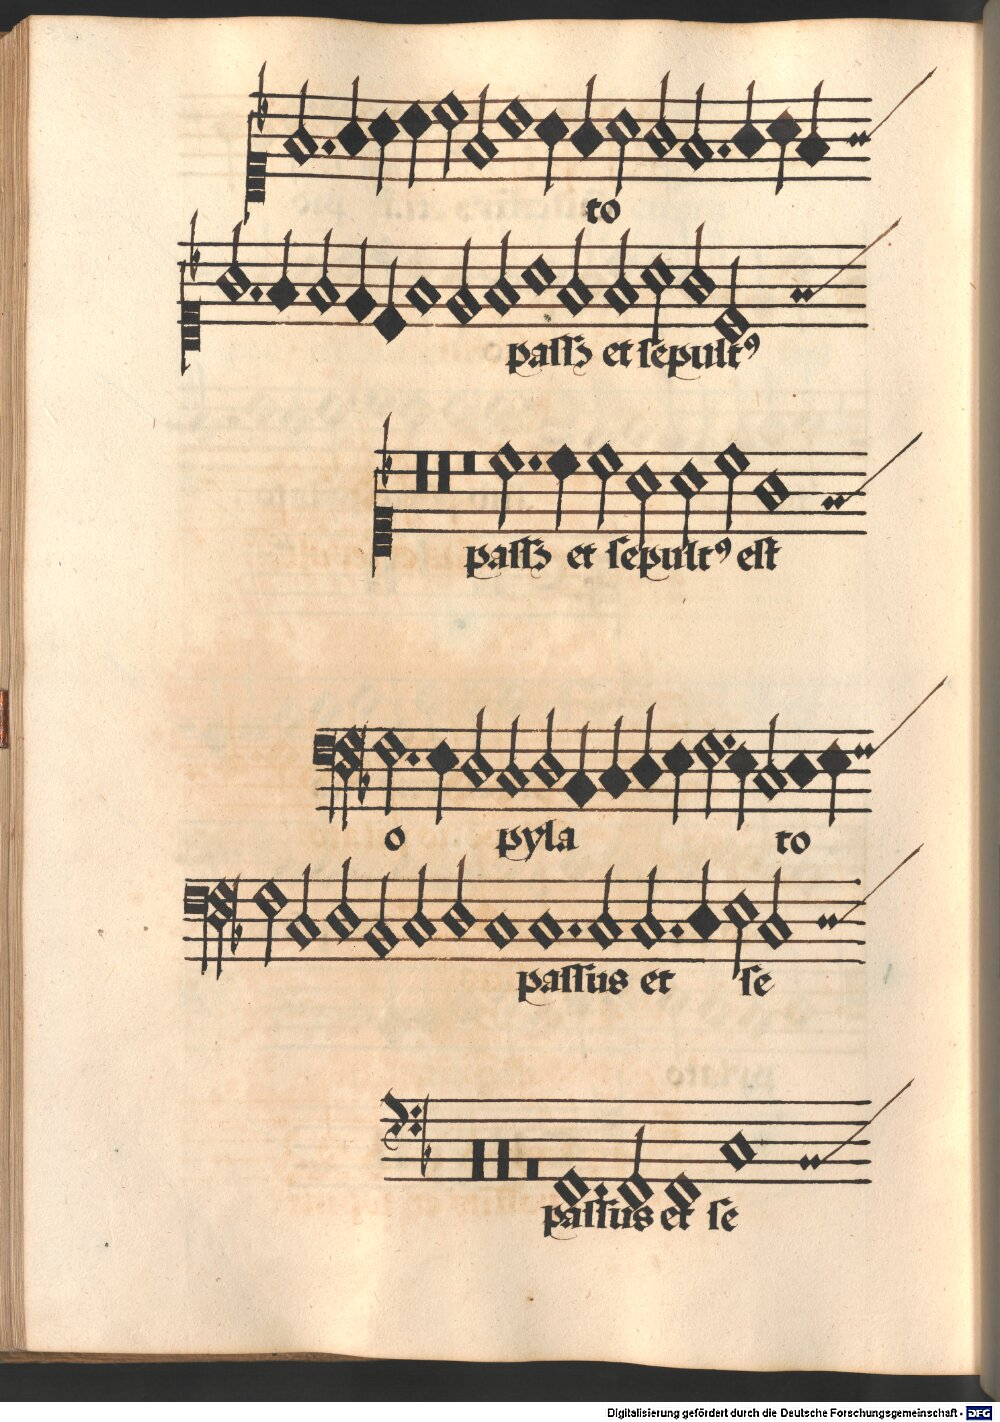 to
passꝫ et sepultꝰ
passꝫ et sepultꝰ est
o pyla to
passus et se
passus et se
Digitalisierung gefördert durch die Deutsche Forschungsgemeinschaft - DFG